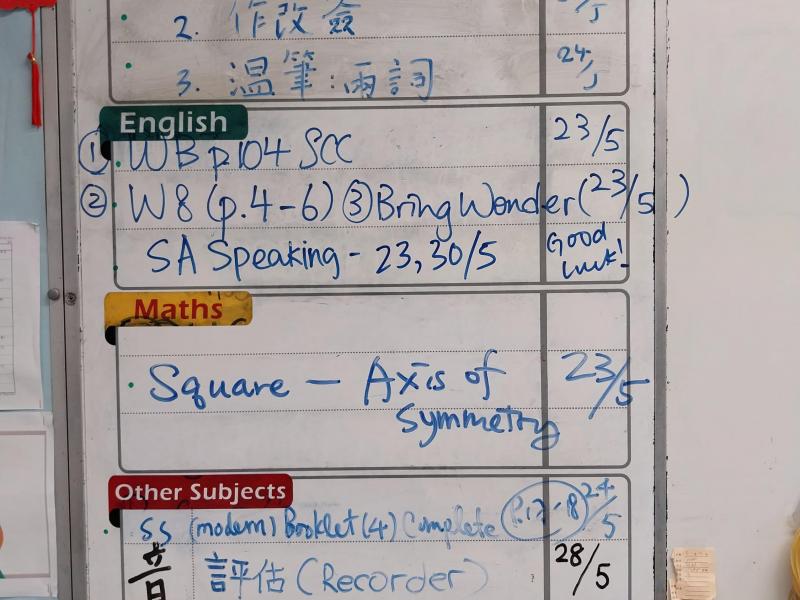 2. 作改
3. 溫筆:兩詞 24/5
English
① WB p104 SCC 23/5
② W8 (p.4-6) ③ Bring Wonder (23/5)
SA Speaking - 23, 30/5 Good luck!
Maths
Square — Axis of Symmetry 23/5
Other Subjects
SS (modern) Booklet (4) Complete 24/5
音 評估 (Recorder) 28/5